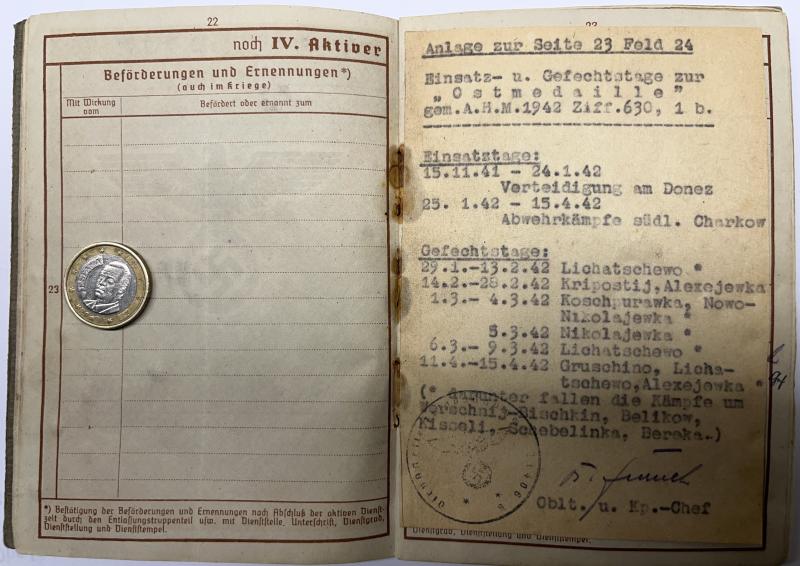 22
noch IV. Aktiver
Beförderungen und Ernennungen*)
(auch im Kriege)
Mit Wirkung vom
Befördert oder ernannt zum
23
*) Bestätigung der Beförderungen und Ernennungen nach Abschluß der aktiven Dienst-
zeit durch den Entlassungstruppenteil usw. mit Dienststelle, Unterschrift, Dienstgrad,
Dienststellung und Dienststempel.
23
Anlage zur Seite 23 Feld 24
Einsatz- u. Gefechtstage zur
"Ostmedaille"
gem.A.H.M.1942 Ziff.630, 1 b.
Einsatztage:
15.11.41 - 24.1.42
Verteidigung am Donez
25. 1.42 - 15.4.42
Abwehrkämpfe südl. Charkow
Gefechtstage:
29.1.-13.2.42 Lichatschewo *
14.2.-28.2.42 Kripostij,Alexejewka
1.3.- 4.3.42 Koschpurawka, Nowo-
Nikolajewka *
5.3.42 Nikolajewka *
6.3.- 9.3.42 Lichatschewo *
11.4.-15.4.42 Gruschino, Licha-
tschewo,Alexejewka *
(* darunter fallen die Kämpfe um
Werschnij-Bischkin, Belikow,
Kisseli, Schebelinka, Bereka.)
Oblt. u. Kp.-Chef
Dienstgrad, Dienststellung und Dienststempel.